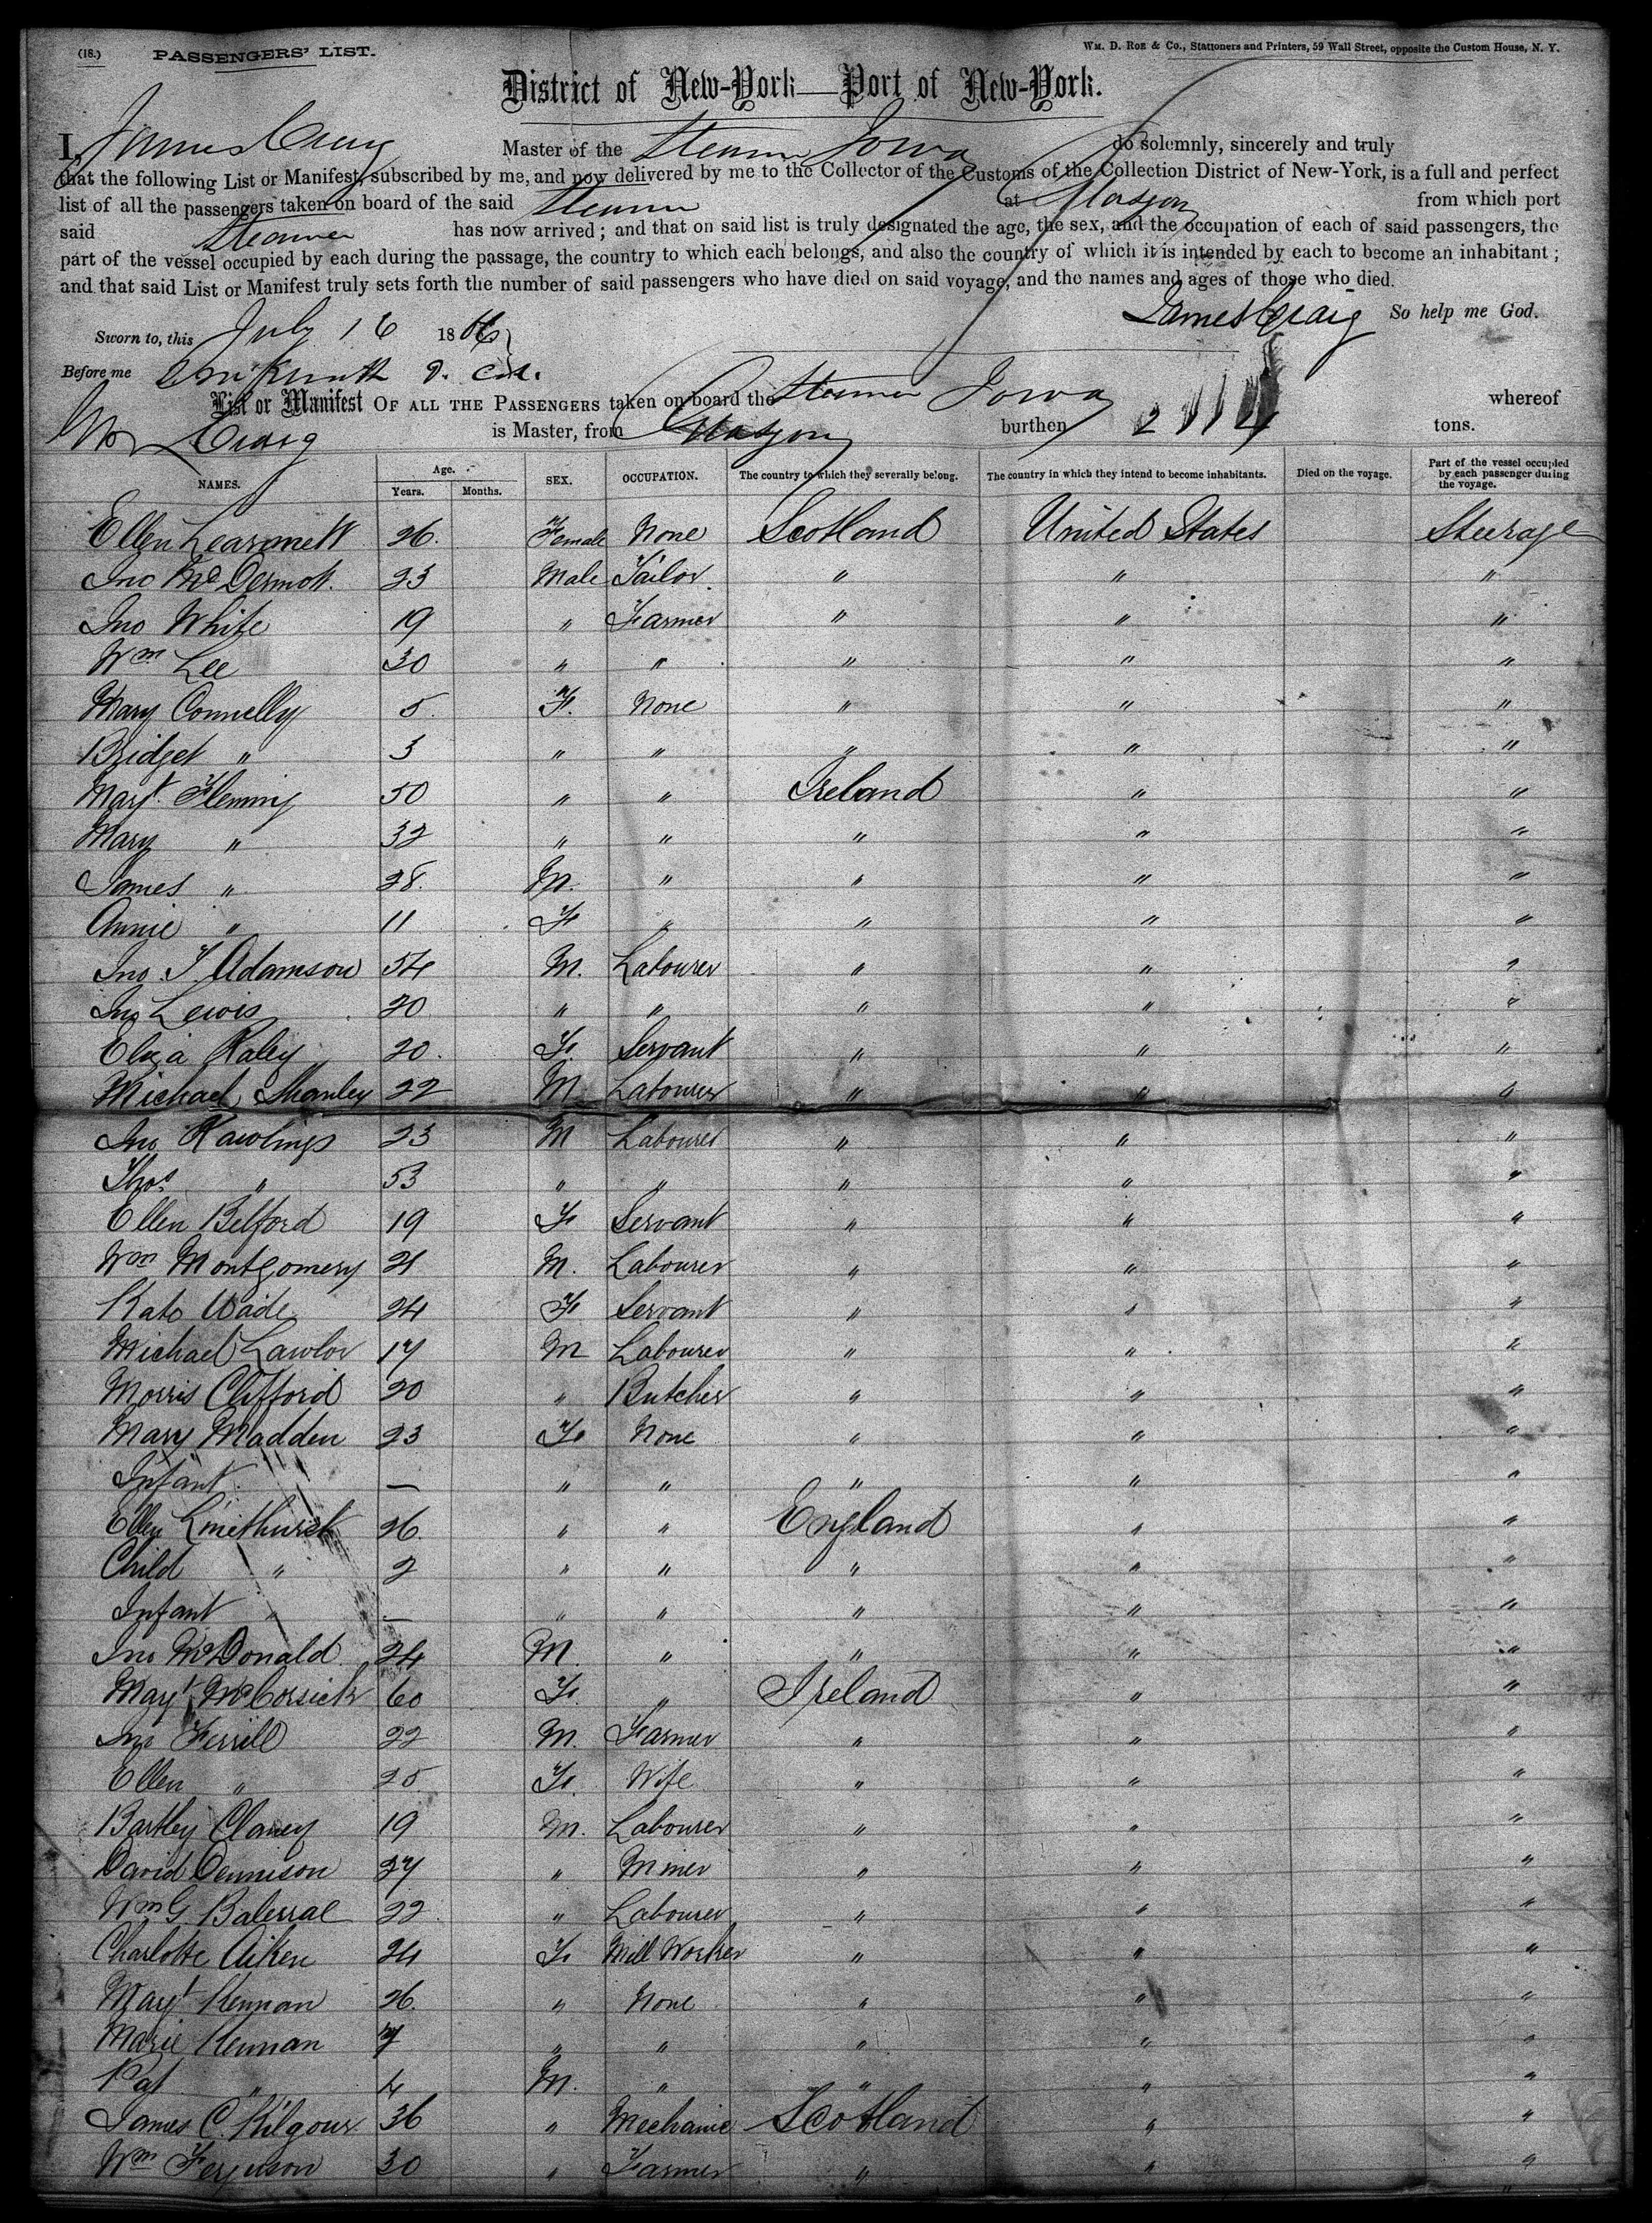 (18.) PASSENGERS' LIST. WM. D. ROE & Co., Stationers and Printers, 59 Wall Street, opposite the Custom House, N. Y.
District of New-York—Port of New-York.
I, James Craig Master of the Steamer Iowa do solemnly, sincerely and truly
that the following List or Manifest, subscribed by me, and now delivered by me to the Collector of the Customs of the Collection District of New-York, is a full and perfect
list of all the passengers taken on board of the said Steamer at Glasgow from which port
said Steamer has now arrived; and that on said list is truly designated the age, the sex, and the occupation of each of said passengers, the
part of the vessel occupied by each during the passage, the country to which each belongs, and also the country of which it is intended by each to become an inhabitant;
and that said List or Manifest truly sets forth the number of said passengers who have died on said voyage, and the names and ages of those who died.
James Craig So help me God.
Sworn to, this July 16 1866
Before me
List or Manifest OF ALL THE PASSENGERS taken on board the Steamer Iowa whereof
Craig is Master, from Glasgow burthen tons.
NAMES. Age. Years. Months. SEX. OCCUPATION. The country to which they severally belong. The country in which they intend to become inhabitants. Died on the voyage. Part of the vessel occupied by each passenger during the voyage.
Ellen Learmett 26. Female None Scotland United States Steerage
Jno McDermott. 23 Male Tailor " " "
Jno White 19 " Farmer " " "
Wm Lee 30 " " " " "
Mary Connelly 5. F. None " " "
Bridget " 3 " " " " "
Margt. Fleming 50 " " Ireland " "
Mary " 32 " " " " "
James " 28. M. " " " "
Annie " 11 F " " " "
Jno. T. Adamson 54 M. Labourer " " "
Jno Lewis 20 " " " " "
Eliza Raley 20. F. Servant " " "
Michael Shanley 22 M Labourer " " "
Jno Rawlings 23 M Labourer " " "
Thos " 53 " " " " "
Ellen Belford 19 F Servant " " "
Wm Montgomery 21 M. Labourer " " "
Kate Wade 24 F Servant " " "
Michael Lawlor 17 M Labourer " " "
Morris Clifford 20 " Butcher " " "
Mary Madden 23 F. None " " "
Infant — " " " " "
Ellen Smethurst 26. " " England " "
Child " 2 " " " " "
Infant " — " " " " "
Jno McDonald 24 M. " " " "
Margt McCorsick 60 F. " Ireland " "
Jno Ferrill 22 M. Farmer " " "
Ellen " 25 F. Wife " " "
Bartley Clancy 19 M. Labourer " " "
David Dennison 27 " Miner " " "
Wm G. 22. " Labourer " " "
Charlotte Aiken 24 F Mill Worker " " "
Margt Kennan 26. " None " " "
Marie Kennan 7 " " " " "
Pat " 4 M. " " " "
James C. Kilgour 36 " Mechanic Scotland " "
Wm Ferguson 30 " Farmer " " "